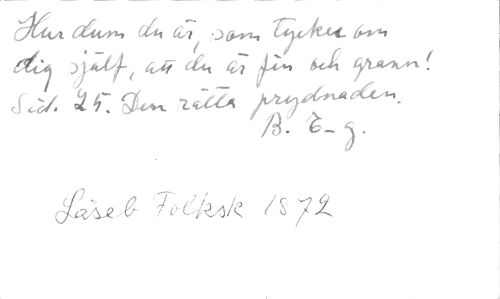 Hur dum du är, som tycker om
dig själf, att du är fin och grann!
Sid. 25. Den rätta prydnaden.
B. E-g.
Läseb Folksk 1872